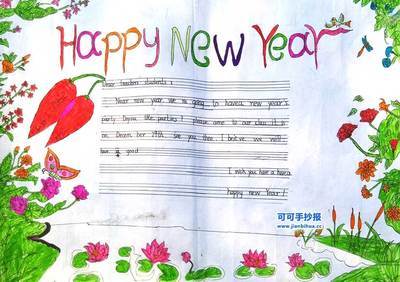 Happy New Year
Dear teachers students :
New year we is going to havea new year's
party. Doyou like parties ? please come to our class it is
on Decem ber 29th. see you then. I belive we will
have good
I wish you have a
happy new Year !
可可手抄报
www.jianbihua.cc